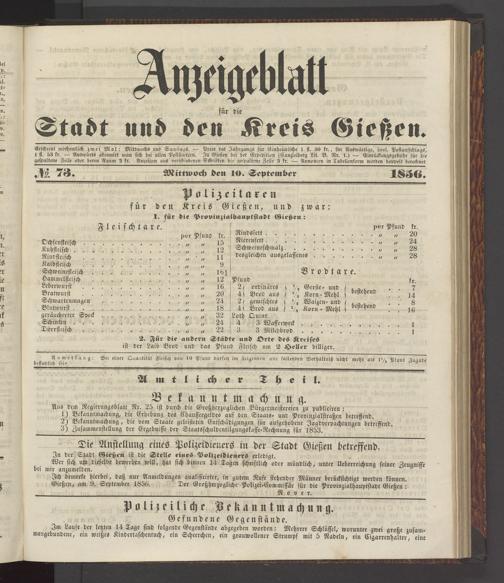 Anzeigeblatt
für die
Stadt und den Kreis Gießen.
Erscheint wöchentlich zwei Mal: Mittwochs und Samstags. — Preis des Jahrgangs für Einheimische 1 fl. 30 kr., für Auswärtige, incl. Postaufschlags,
№ 73. Mittwoch den 10. September 1856.
Polizeitaxen
für den Kreis Gießen, und zwar:
1. für die Provinzialhauptstadt Gießen:
Fleischtare.
per Pfund kr.
Ochsenfleisch 15
Kuhfleisch 12
Rindfleisch
Kalbfleisch 9
Schweinefleisch 16½
Hammelfleisch 12
Leberwurst 16
Bratwurst 20
Schwartenmagen 24
Blutwurst 18
geräucherter Speck 32
Schinken 24
Dörrfleisch 22
per Pfund kr.
Rindsfett 20
Nierenfett 24
Schweineschmalz 28
desgleichen ausgelassenes 28
Brodtare.
Pfund kr.
2 ordinäres Gerste- und bestehend 7
4 Brod aus Korn-Mehl 14
2 gemischtes Waizen- und bestehend 8
4 Brod aus Korn-Mehl 16
Loth Quint
4 3 Wasserweck 1
3 3 Milchbrod 1
2. Für die andern Städte und Orte des Kreises
ist der Laib Brod und das Pfund Fleisch um 2 Heller billiger.
Anmerkung: Bei einer Quantität Fleisch von 10 Pfund dürfen im Allgemeinen
Amtlicher Theil.
Bekanntmachung.
Aus dem Regierungsblatt Nr. 25 ist durch die Großherzoglichen Bürgermeistereien zu publiciren:
1) Bekanntmachung, die Erhebung des Chausseegeldes auf den Staats- und Provinzialstraßen betreffend.
2) Bekanntmachung, die vom Staate geleisteten Entschädigungen für aufgehobene Jagdverpachtungen betreffend.
3) Zusammenstellung der Ergebnisse der Staatsschuldentilgungskasse-Rechnung für 1853.
Die Anstellung eines Polizeidieners in der Stadt Gießen betreffend.
In der Stadt Gießen ist die Stelle eines Polizeidieners erledigt.
Wer sich um dieselbe bewerben will, hat sich binnen 14 Tagen schriftlich oder mündlich, unter Ueberreichung seiner Zeugnisse
bei mir anzumelden.
Ich bemerke hierbei, daß nur Anmeldungen qualificirter, in gutem Rufe stehender Männer berücksichtigt werden können.
Gießen, am 9. September 1856. Der Großherzogliche Polizei-Commissär für die Provinzialhauptstadt Gießen:
Nover.
Polizeiliche Bekanntmachung.
Gefundene Gegenstände.
Im Laufe der letzten 14 Tage sind folgende Gegenstände abgegeben worden: Mehrere Schlüssel, worunter zwei große zusam-
mengebundene, ein weißes Kindertaschentuch, ein Scheerchen, ein grauwollener Strumpf mit 5 Nadeln, ein Cigarrenhalter, eine